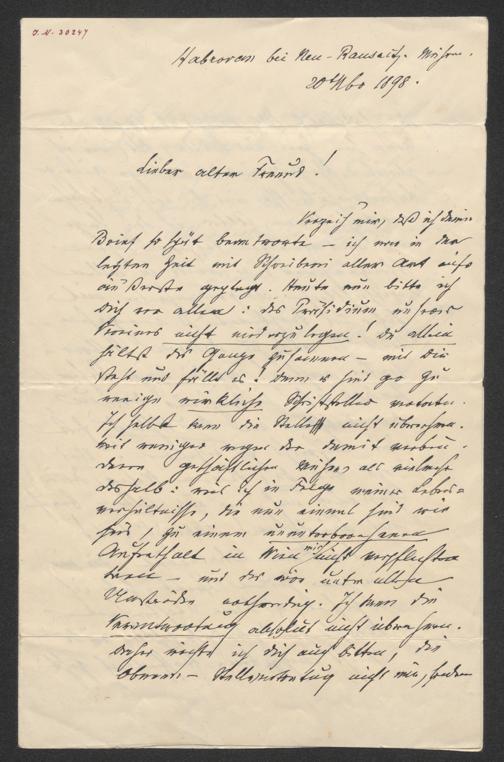 I.N. 30247
Habrovan bei Neu-Rausnitz. Mähren.
20 Nov 1898.
Lieber alter Freund!
Verzeih mir, daß ich deinen
Brief so spät beantworte – ich war in der
letzten Zeit mit Schreiberei aller Art aufs
äußerste geplagt. Heute nun bitte ich
Dich vor allem: das Präsidium unseres
Vereines nicht niederzulegen! Du allein
hältst das Ganze zusammen – mit Dir
steht und fällt es! denn es sind zu
wenige wirkliche Schriftsteller
Ich selbst kann die Stelle nicht übernehmen.
weit weniger wegen der damit verbun-
denen geschäftlichen Mühen, als vielmehr
deshalb: weil ich in Folge meiner Lebens-
verhältnisse, die nun einmal sind wie
sie sind, zu einem ununterbrochenen
Aufenthalt in Wien mich nicht verpflichten
kann – und das wäre unter allen
Umständen nothwendig. Ich kann die
Verantwortung absolut nicht übernehmen.
daher möchte ich dich auch bitten, die
Obmann-Stellvertretung nicht mir, sondern